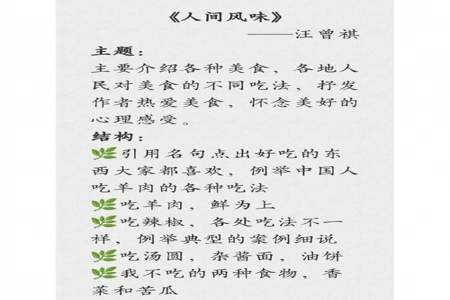 《人间风味》
——汪曾祺
主题：
主要介绍各种美食，各地人
民对美食的不同吃法，抒发
作者热爱美食，怀念美好的
心理感受。
结构：
引用名句点出好吃的东
西大家都喜欢，例举中国人
吃羊肉的各种吃法
吃羊肉，鲜为上
吃辣椒，各处吃法不一
样，例举典型的案例细说
吃汤圆，杂酱面，油饼
我不吃的两种食物，香
菜和苦瓜